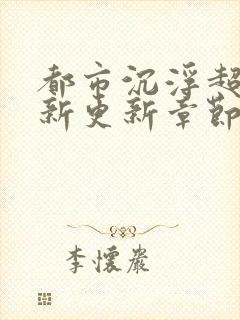 都市沉浮超
新更新章節
李懷巖